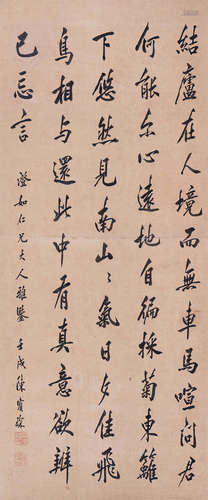 結廬在人境而無車馬喧問君
何能尓心遠地自徧採菊東籬
下悠然見南山〻氣日夕佳飛
鳥相与還此中有真意欲辨
已忘言
澄如仁兄大人雅鑒 壬戌陳寶琛